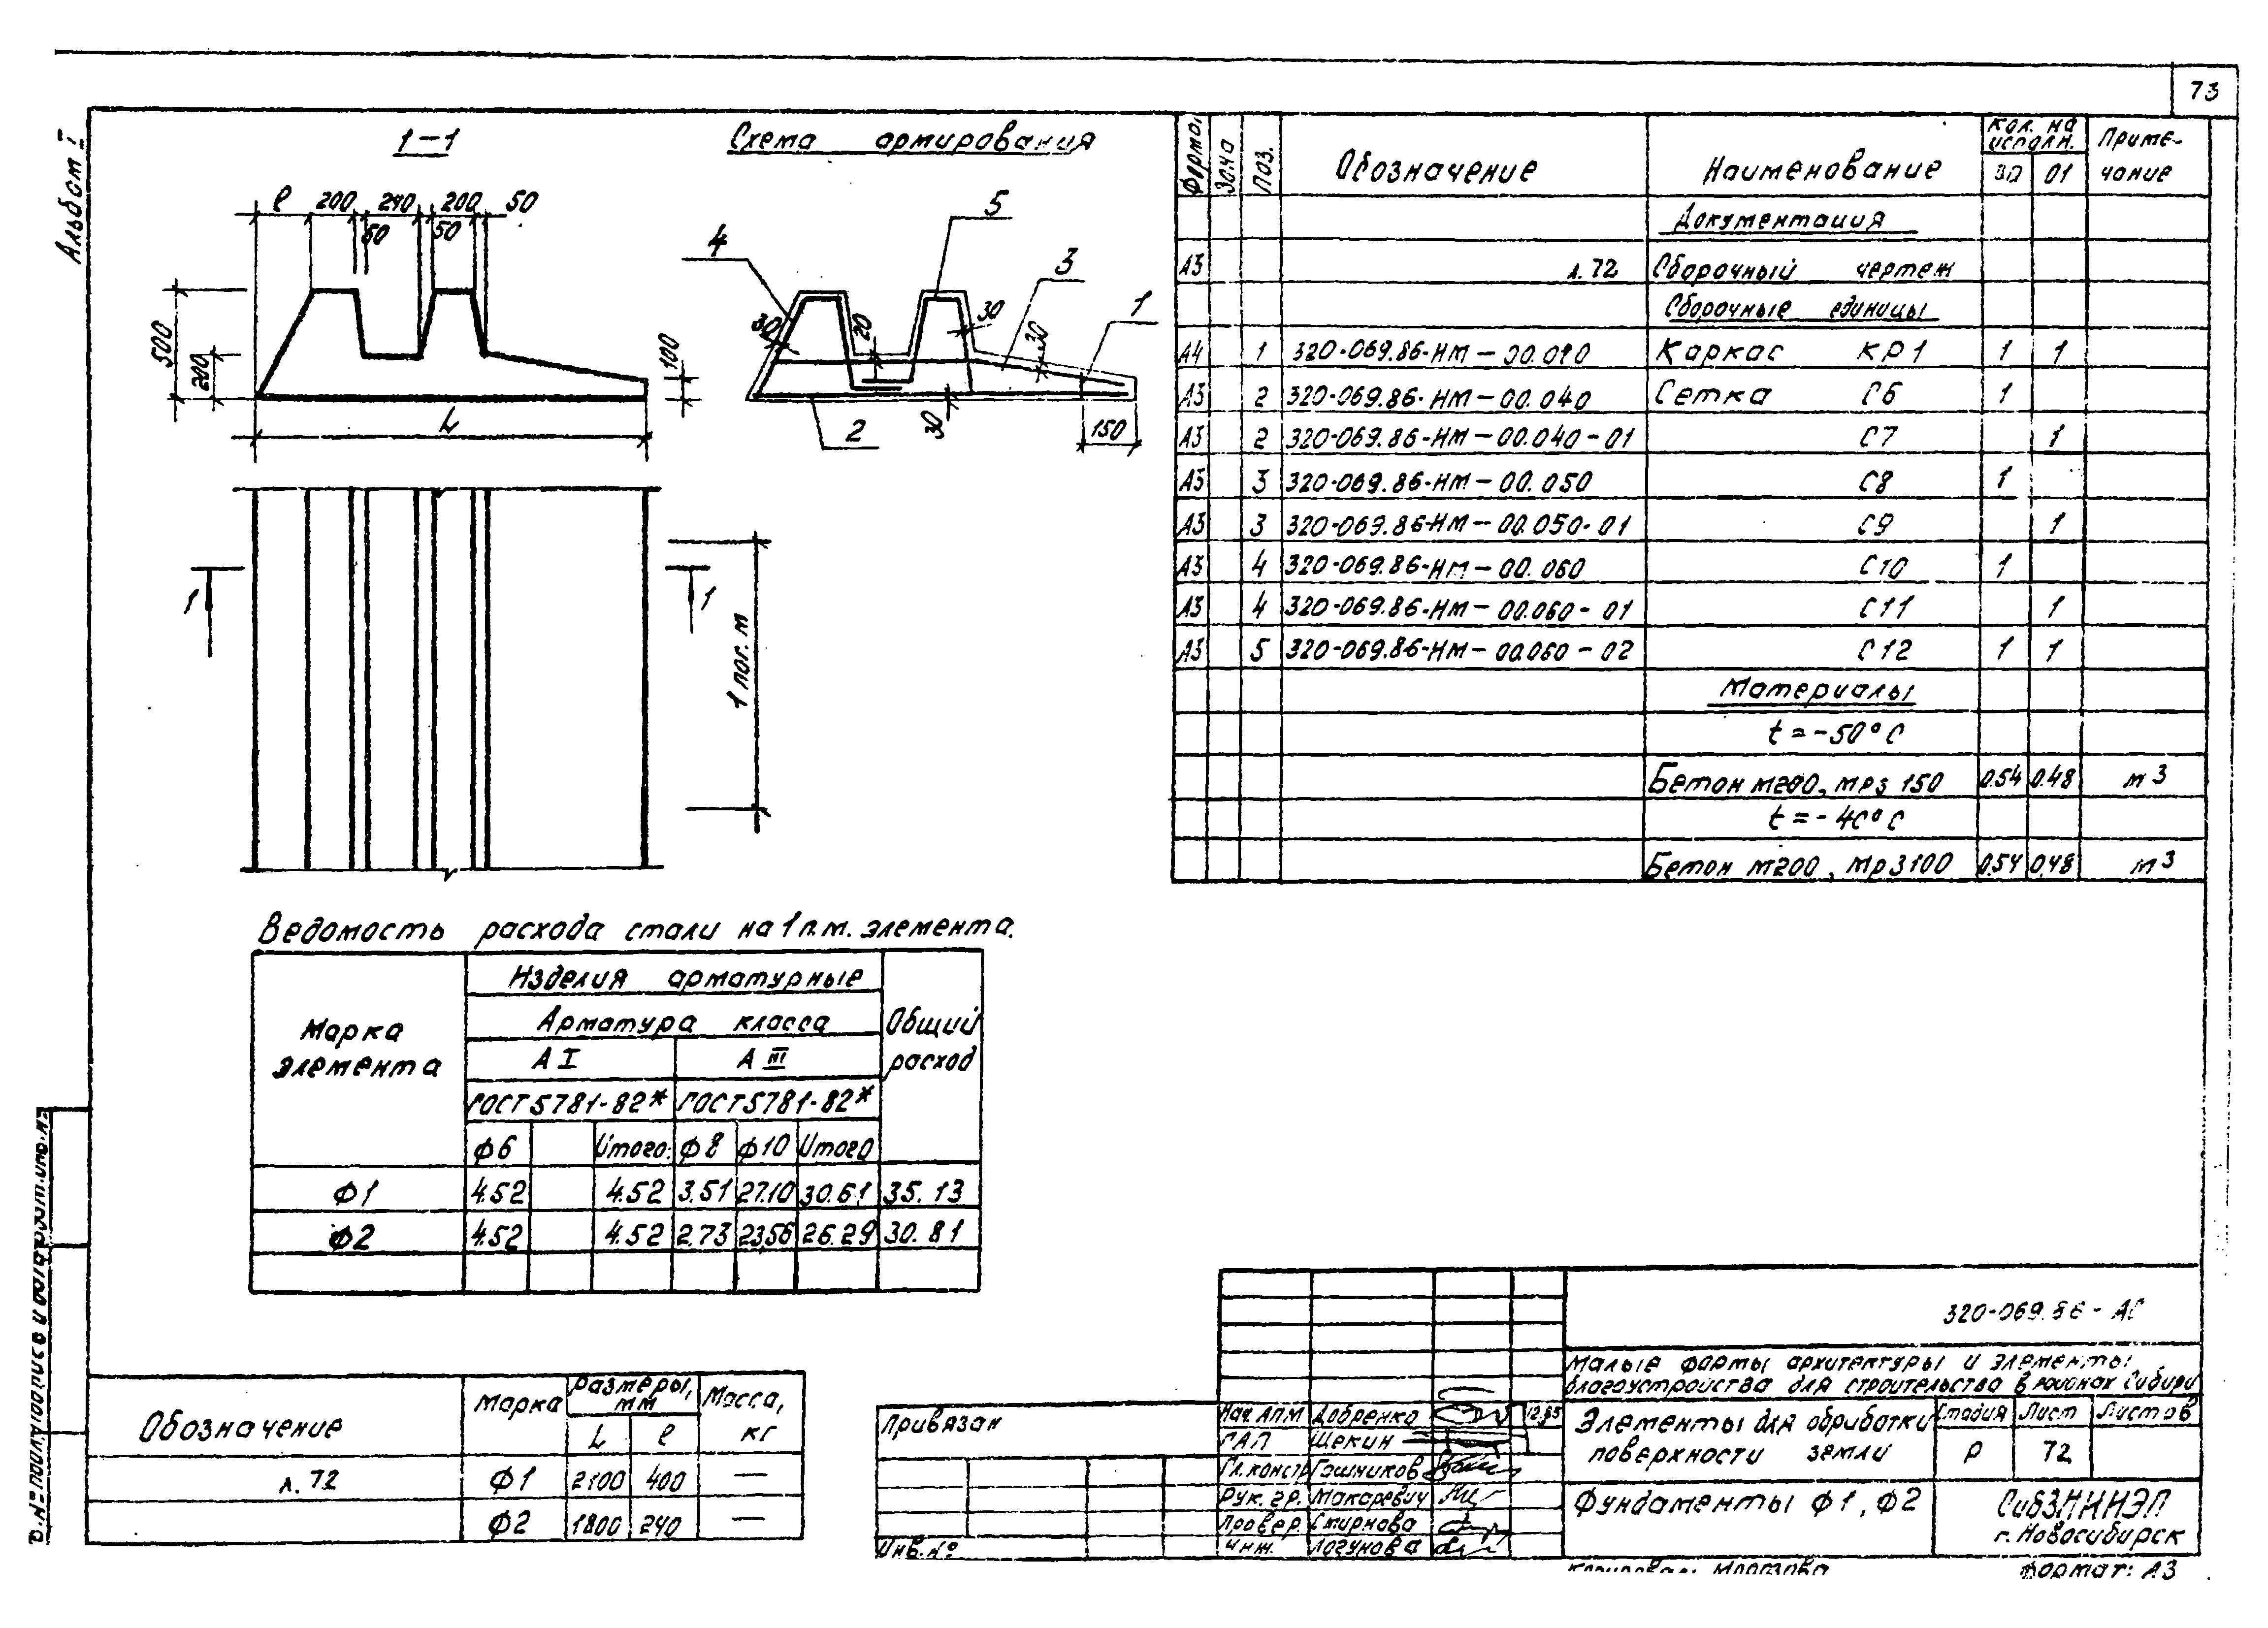 73
Альбом I
1-1
Схема армирования
l 200 240 200 50
50 50
500
200
100
L
4
5
3
1
30
20
30
30
30
2
150
1
1
1 пог. м
Формат Зона Поз. Обозначение Наименование Кол. на исполн. Приме-
чание
01
Документация
А3 л. 72 Сборочный чертеж
Сборочные единицы
А4 1 320-069.86-НМ-00.010 Каркас КР1 1 1
А3 2 320-069.86-НМ-00.040 Сетка С6 1
А3 2 320-069.86-НМ-00.040-01 С7 1
А3 3 320-069.86-НМ-00.050 С8 1
А3 3 320-069.86-НМ-00.050-01 С9 1
А3 4 320-069.86-НМ-00.060 С10 1
А3 4 320-069.86-НМ-00.060-01 С11 1
А3 5 320-069.86-НМ-00.060-02 С12 1 1
Материалы
t=-50°С
Бетон М200, мрз 150 0.54 0.48 м3
t=-40°С
Бетон М200, Мрз100 0.54 0.48 м3
Ведомость расхода стали на 1 п.м. элемента.
Марка элемента
Изделия арматурные
Арматура класса
Общий расход
А I А III
ГОСТ 5781-82* ГОСТ 5781-82*
ф6 Итого: ф8 ф10 Итого
Ф1 4.52 4.52 3.51 27.10 30.61 35.13
Ф2 4.52 4.52 2.73 23.56 26.29 30.81
Обозначение Марка Размеры, мм Масса, кг
L l
л. 72 Ф1 2100 400 —
Ф2 1800 240 —
Привязан
Инв. №
320-069.86-АС
Малые формы архитектуры и элементы
благоустройства для строительства в районах Сибири
Нач АПМ Добренко 12.85
ГАП Щекин
Гл. констр Гашников
Рук. гр. Макаревич
Провер. Смирнова
Инж. Логунова
Элементы для обработки
поверхности земли
Стадия Лист Листов
Р 72
Фундаменты Ф1, Ф2
СибЗНИИЭП
г. Новосибирск
Формат: А3